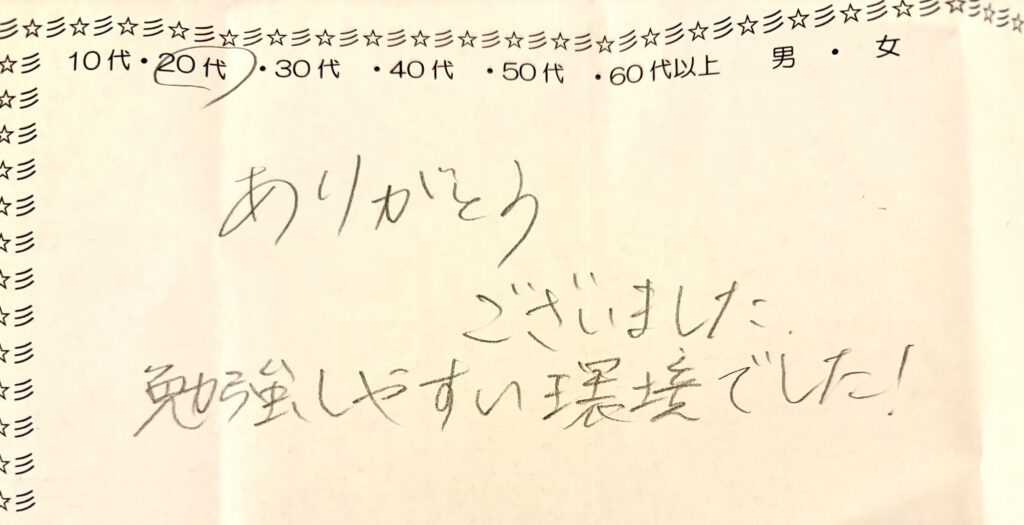 10代・20代・30代・40代・50代・60代以上 男・女
ありがとう
ございました.
勉強しやすい環境でした!